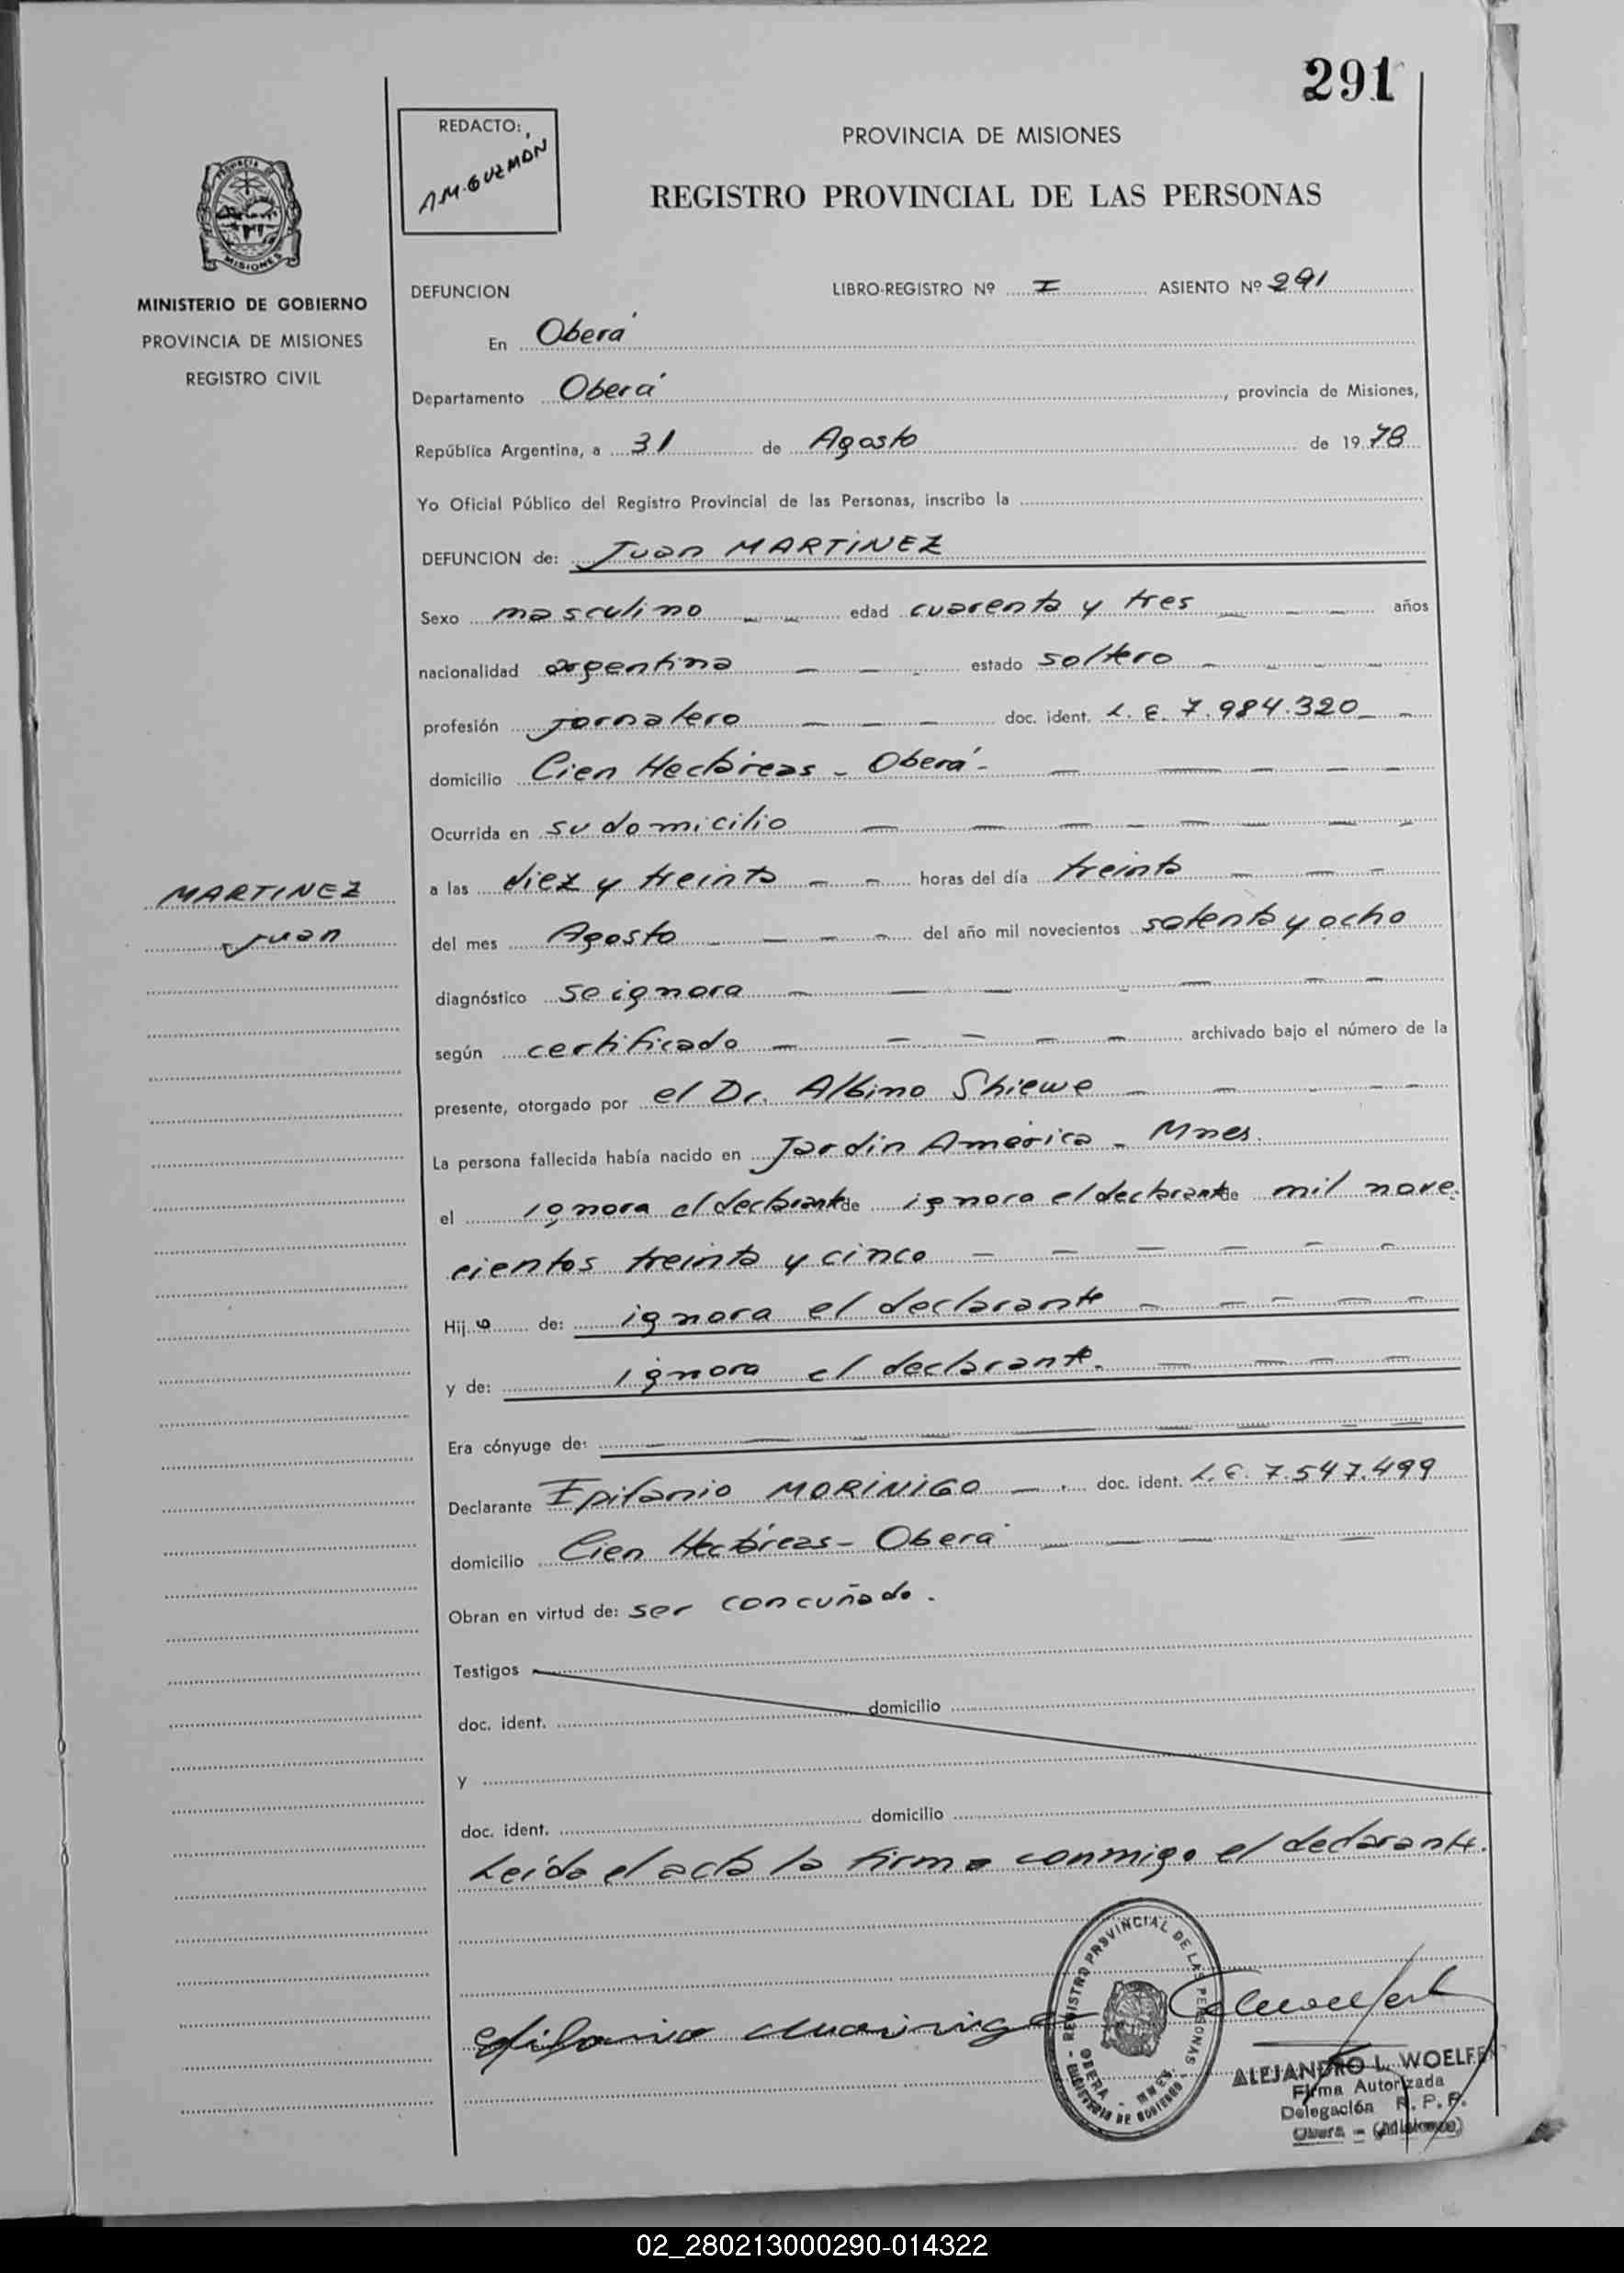 291
REDACTO:
A.M. GUZMAN
PROVINCIA DE MISIONES
REGISTRO PROVINCIAL DE LAS PERSONAS
PROVINCIA DE
MISIONES
MINISTERIO DE GOBIERNO
PROVINCIA DE MISIONES
REGISTRO CIVIL
DEFUNCION LIBRO-REGISTRO Nº I ASIENTO Nº 291
En Oberá
Departamento Oberá, provincia de Misiones,
República Argentina, a 31 de Agosto de 1978
Yo Oficial Público del Registro Provincial de las Personas, inscribo la
DEFUNCION de: Juan MARTINEZ
Sexo masculino edad cuarenta y tres años
nacionalidad argentina estado soltero
profesión jornalero doc. ident. L.E. 7.984.320
domicilio Cien Hectáreas - Oberá -
Ocurrida en su domicilio
a las diez y treinta horas del día treinta
MARTINEZ
Juan
del mes Agosto del año mil novecientos setenta y ocho
diagnóstico se ignora
según certificado archivado bajo el número de la
presente, otorgado por el Dr. Albino Shiewe
La persona fallecida había nacido en Jardín América - Mnes.
el ignora el declarante de ignora el declarante de mil nove-
cientos treinta y cinco
Hijo de: ignora el declarante
y de: ignora el declarante.
Era cónyuge de:
Declarante Epifanio MORINIGO doc. ident. L.E. 7.547.499
domicilio Cien Hectáreas - Oberá
Obran en virtud de: ser concuñado.
Testigos
doc. ident. domicilio
y
doc. ident. domicilio
Leída el acta la firma conmigo el declarante.
REGISTRO PROVINCIAL DE LAS PERSONAS
OBERA - MNES.
MINISTERIO DE GOBIERNO
ALEJANDRO L. WOELFERT
Firma Autorizada
Delegación R. P. P.
Oberá - (Misiones)
02_280213000290-014322